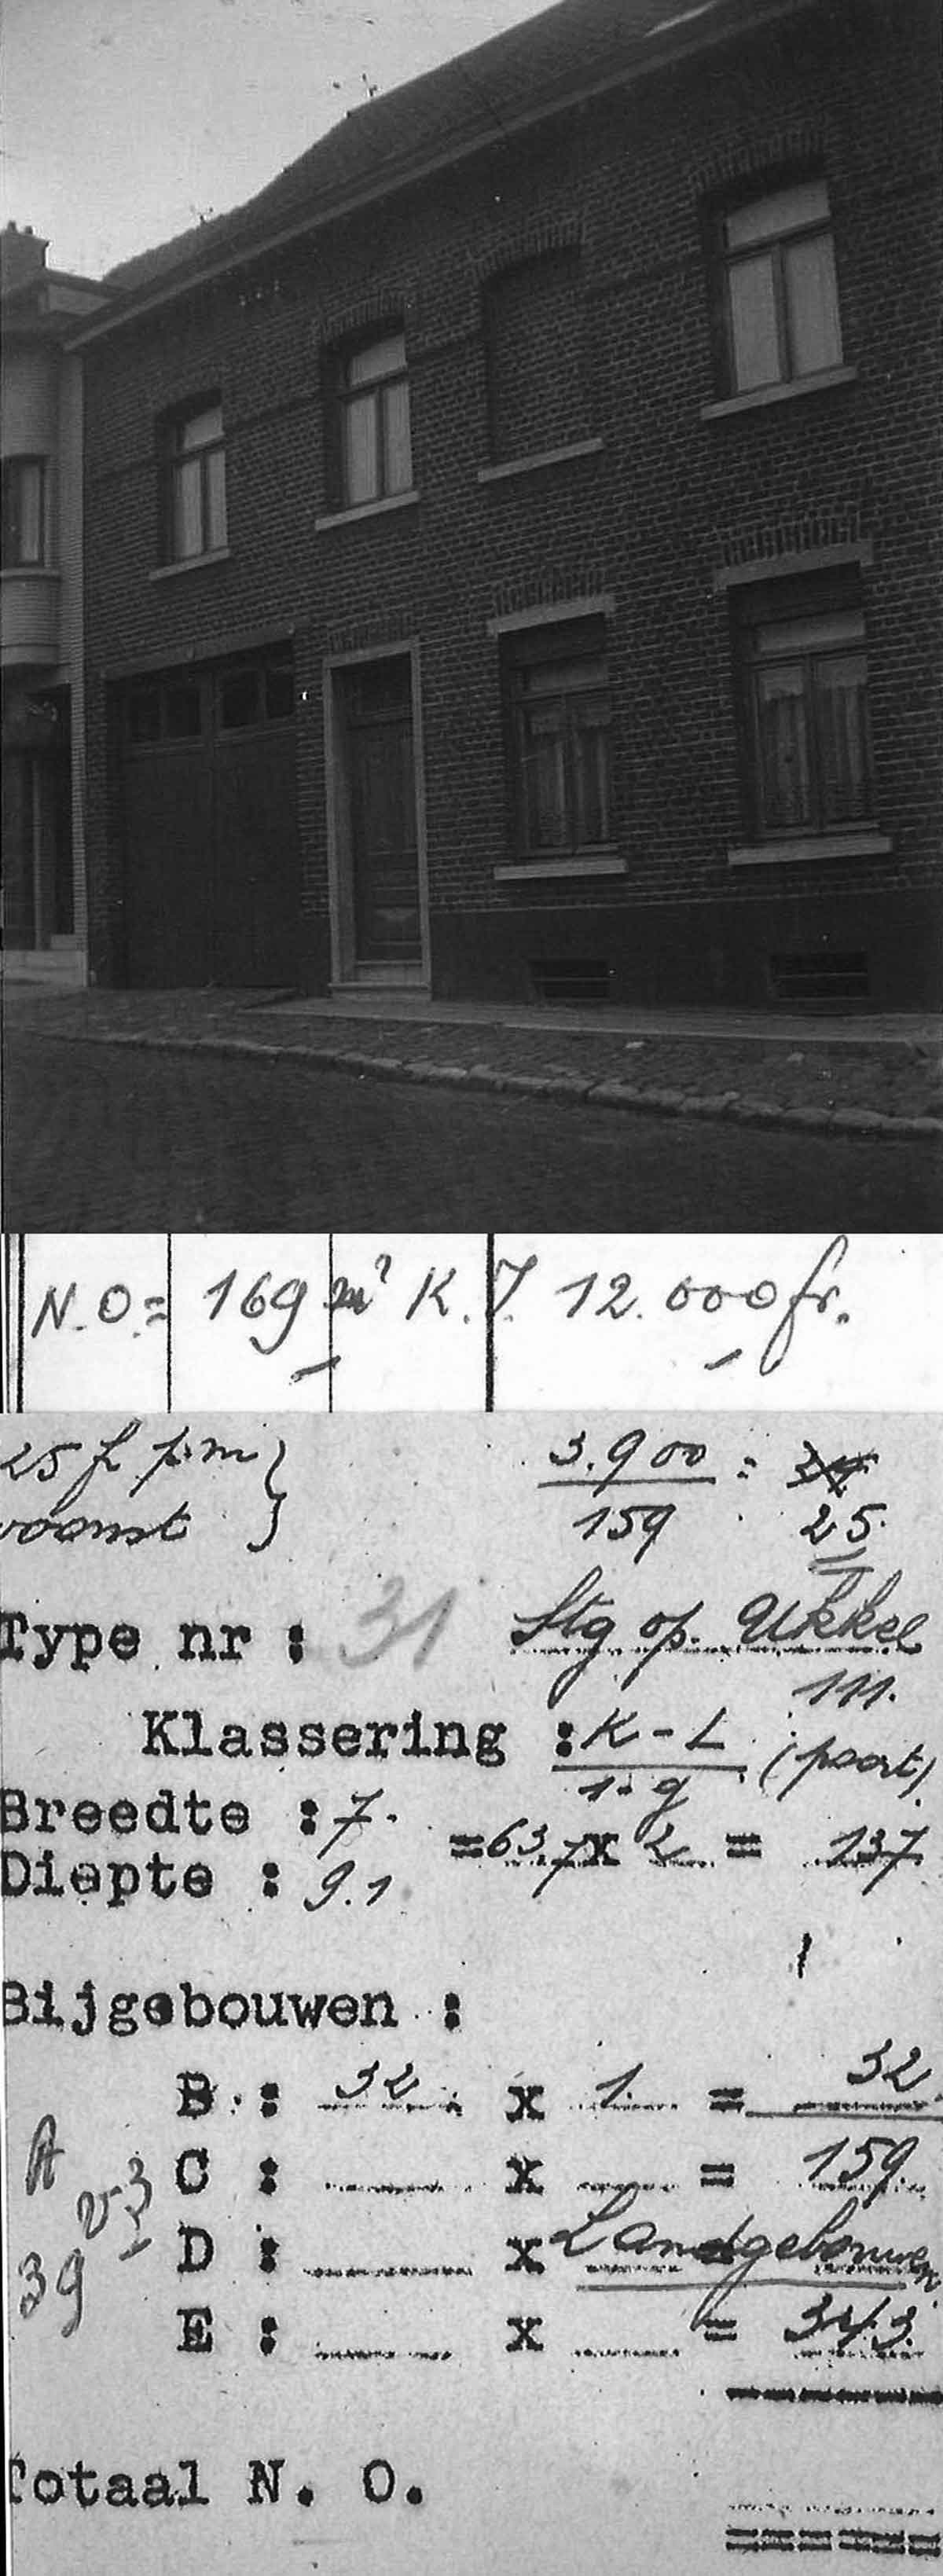 N.O.= 169 m² K.I. 12.000 fr.
25 f p.m } 3.900 =
woonst } 159 25.
Type nr : 31 Stg op. Ukkel
111.
Klassering : K - L (poort)
1 - g
Breedte : 7. =63.7 x 2 = 137
Diepte : 9.1
Bijgebouwen :
B : 32 x 1 = 32
A C : x = 159
v 3 D : x Landgebouwen
39 E : x = 343
Totaal N. O.